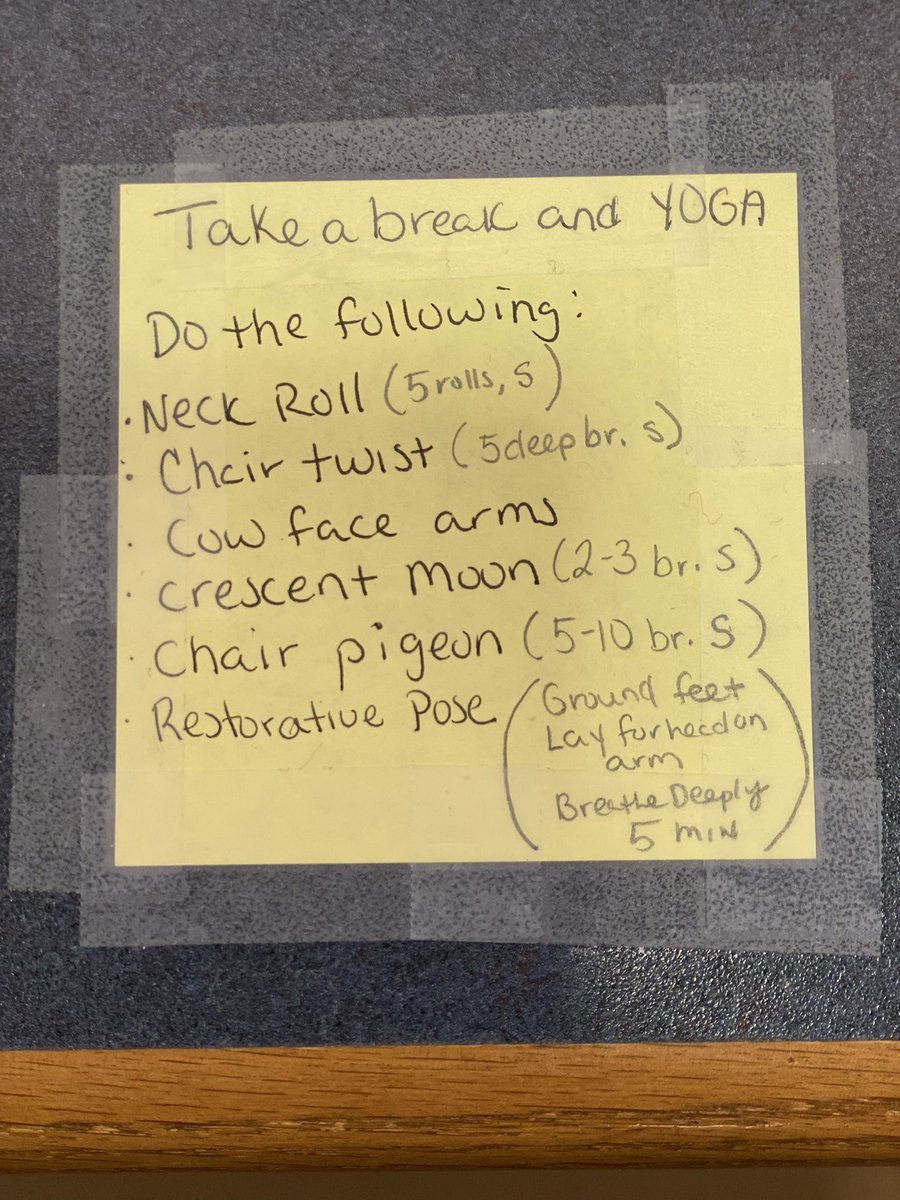 Take a break and YOGA
Do the following:
· Neck Roll (5 rolls, S)
· Chair twist (5 deep br. S)
· Cow face arms
· crescent moon (2-3 br. S)
· Chair pigeon (5-10 br. S)
· Restorative Pose (Ground feet
Lay forhead on
arm
Breathe Deeply
5 min)